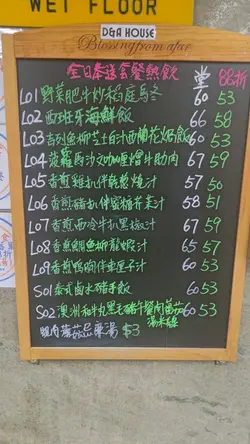 WET FLOOR
D&A HOUSE
Blessing from afar
全日奉送套餐熱飲 堂 88折
L01 野菜肥牛炒稻庭烏冬 60 53
L02 西班牙海鮮飯 66 58
L03 吉列魚柳芝士白汁西蘭花焗飯 60 53
L04 菠蘿馬沙文咖喱燴牛肋肉 67 59
L05 香煎雞扒伴乾葱燒汁 57 50
L06 香煎豬扒伴蜜糖芥末汁 58 51
L07 香煎西冷牛扒黑椒汁 67 59
L08 香煎鯛魚柳龍蝦汁 65 57
L09 香煎鴨胸伴車厘子汁 60 53
S01 泰式鹵水豬手飯 60 53
S02 澳洲和牛丸黑毛豬午餐肉蕃茄湯米線 60 53
蘑菇忌廉湯 $3